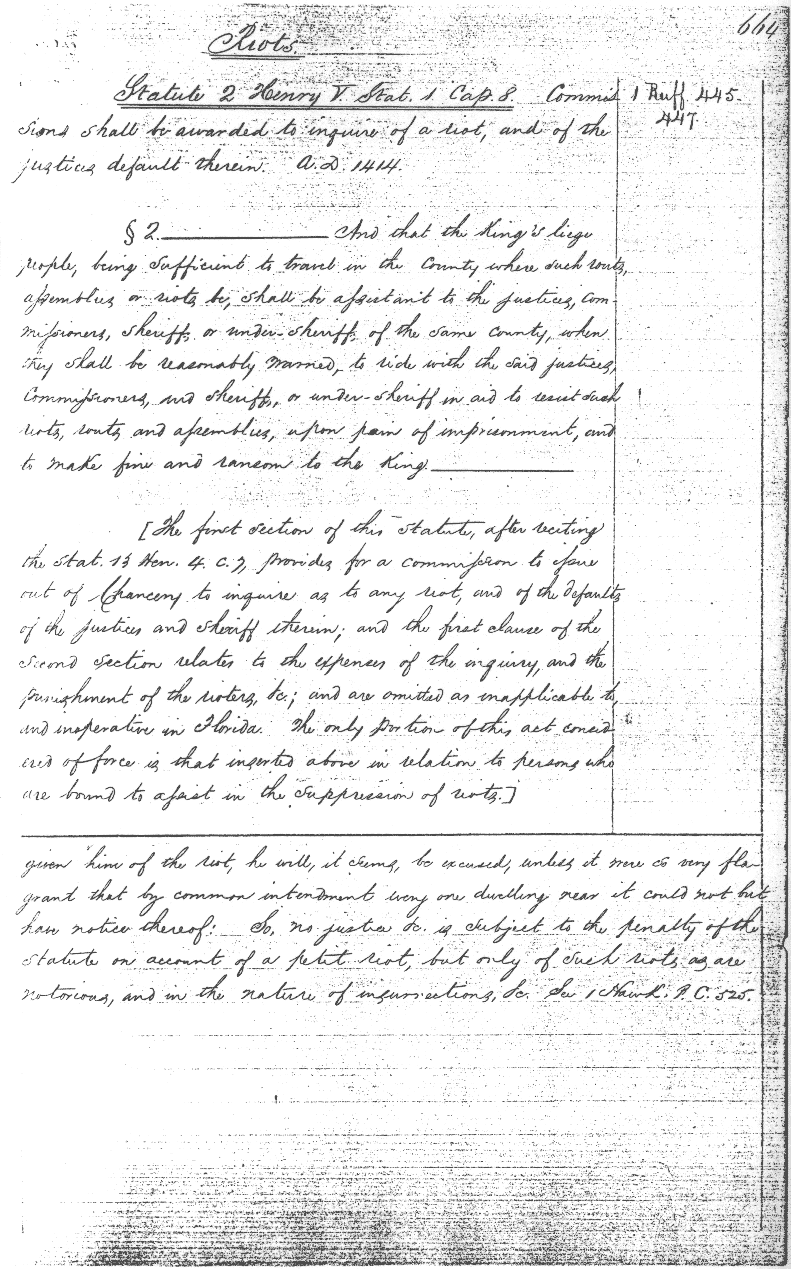 664
Riots.
Statute 2 Henry V. Stat. 1. Cap. 8. Commis
1 Ruff 445.
447.
sions shall be awarded to inquire of a riot, and of the
justices default therein. A.D. 1414.
§ 2. And that the King's liege
people, being sufficient to travel in the County where such routs,
assemblies or riots be, shall be assistant to the justices, com-
missioners, sheriffs, or under-sheriffs, of the same county, when
they shall be reasonably warned, to ride with the said justices,
Commissioners, and sheriffs, or under-sheriff in aid to resist such
riots, routs and assemblies, upon pain of imprisonment, and
to make fine and ransom to the King.
[The first section of this Statute, after reciting
the Stat. 13 Hen. 4. c. 7, provides for a commission to issue
out of Chancery to inquire as to any riot, and of the defaults
of the justices and sheriff therein; and the first clause of the
second section relates to the expenses of the inquiry, and the
punishment of the rioters, &c.; and are omitted as inapplicable to,
and inoperative in Florida. The only portion of this act consid
ered of force is that inserted above in relation to persons who
are bound to assist in the suppression of riots.]
given him of the riot, he will, it seems, be excused, unless it were so very fla-
grant that by common intendment every one dwelling near it could not but
have notice thereof: So, no justice &c. is subject to the penalty of the
Statute on account of a petit riot, but only of such riots as are
notorious, and in the nature of insurrections, &c. See 1 Hawk. P. C. 525.